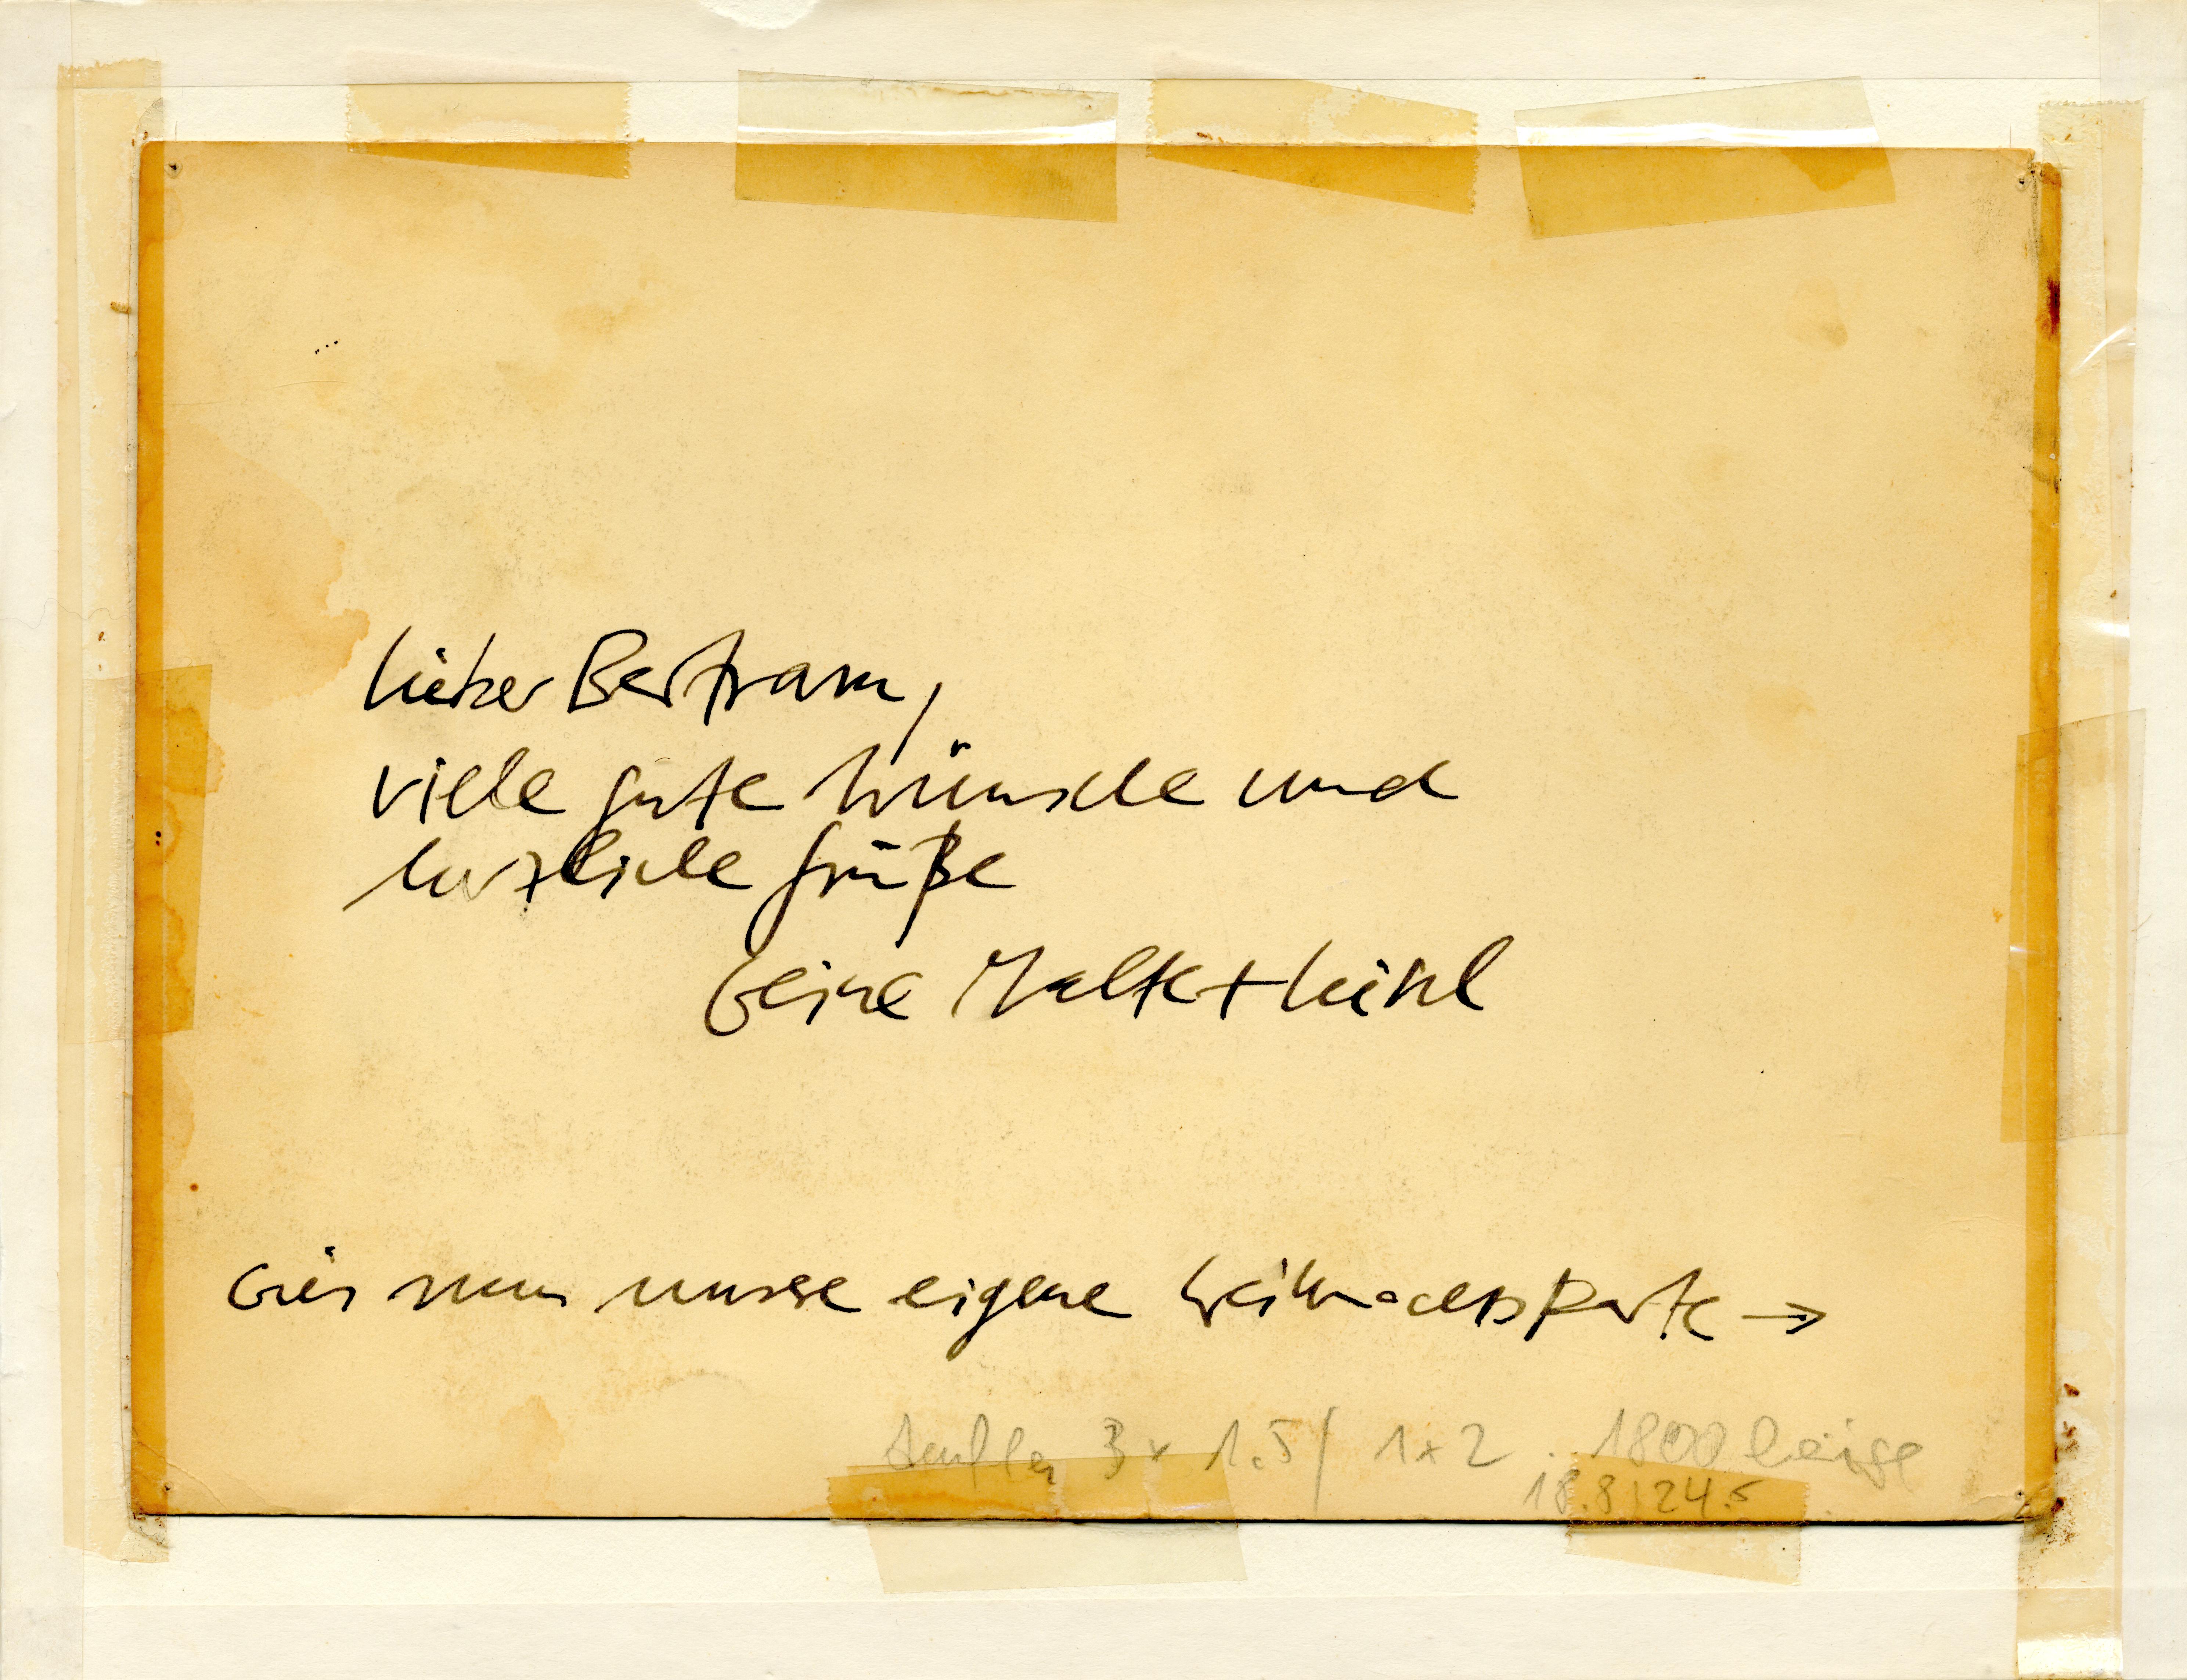 lieber Bertram,
viele gute Wünsche und
herzliche Grüße
Deine Malte +
hier nun unsere eigene Weihnachtskarte →
3 x 1.5 / 1 x 2 . 1800 beige
18.8 | 24.5